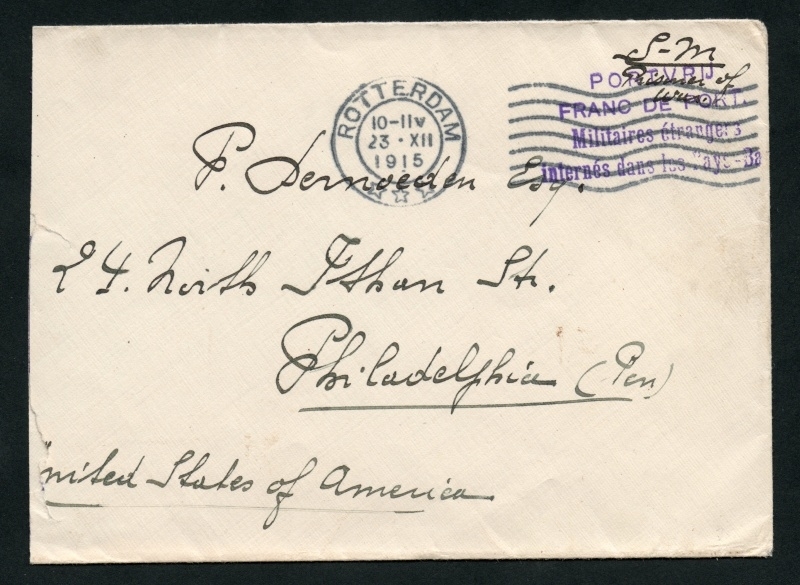 S-M
Prisoner of
War
PORTVRIJ
FRANC DE PORT.
Militaires étrangers
internés dans les Pays-Ba
ROTTERDAM
10-11V
23 · XII
1915
P. Dernoeden Esq.
24. North Ithan St.
Philadelphia (Pen)
United States of America